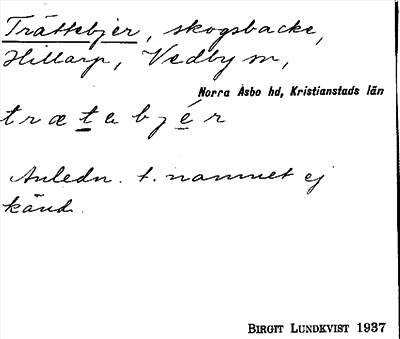 Trättebjer, skogsbacke,
Hillarp, Vedby sn,
Norra Åsbo hd, Kristianstads län
trætabjér
Anledn. t. namnet ej
känd.
BIRGIT LUNDKVIST 1937